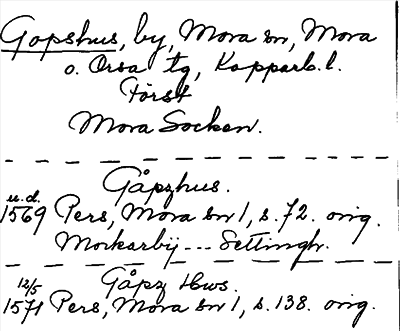 Gopshus, by, Mora sn, Mora
o. Orsa tg, Kopparb. l.
Först
Mora Socken.
Gåpzhus.
u.d.
1569 Pers, Mora sn 1, s. 72. orig.
Morkarbÿ --- Settingh.
12/5 Gåpz Hws.
1571 Pers, Mora sn 1, s. 138. orig.